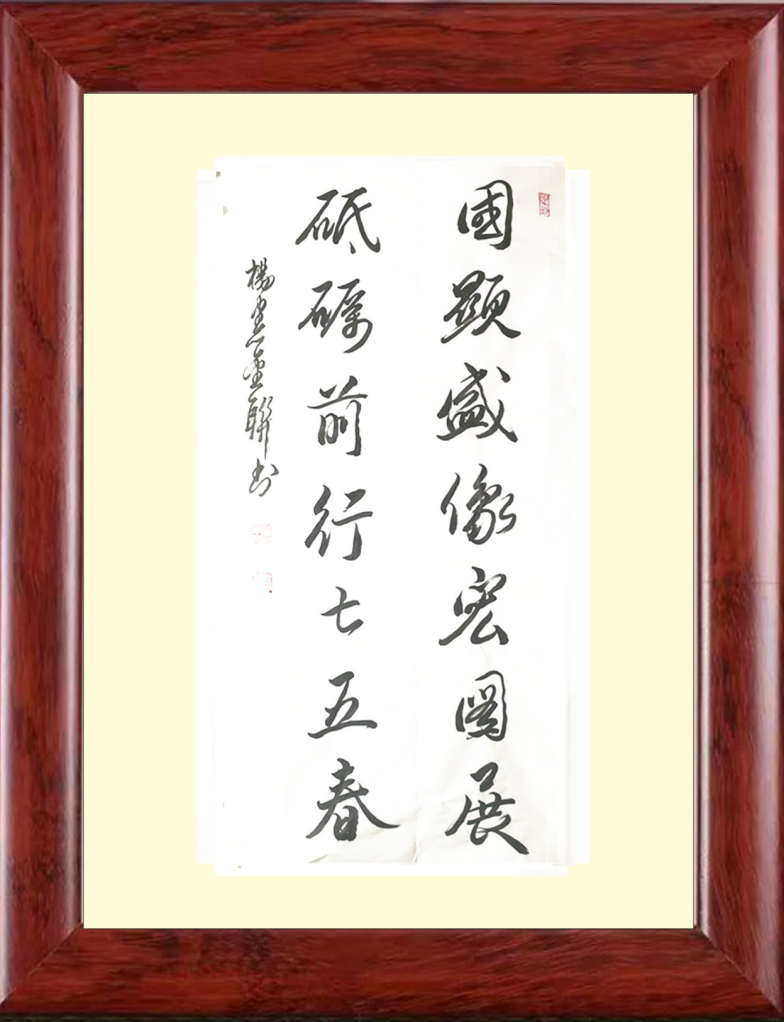 國顯盛像宏圖展
砥礪前行七五春
楊 聯書